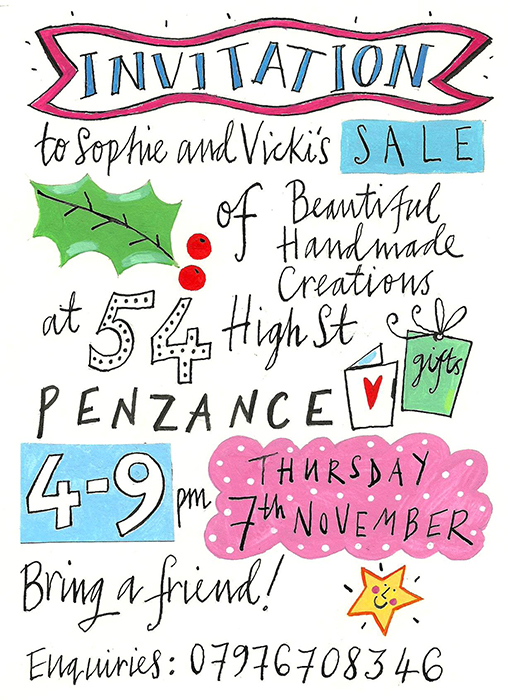 INVITATION
to Sophie and Vicki's SALE
of Beautiful
Handmade
Creations
at 54 High St
gifts
PENZANCE
4-9 pm
THURSDAY
7th NOVEMBER
Bring a friend!
Enquiries: 07976708346